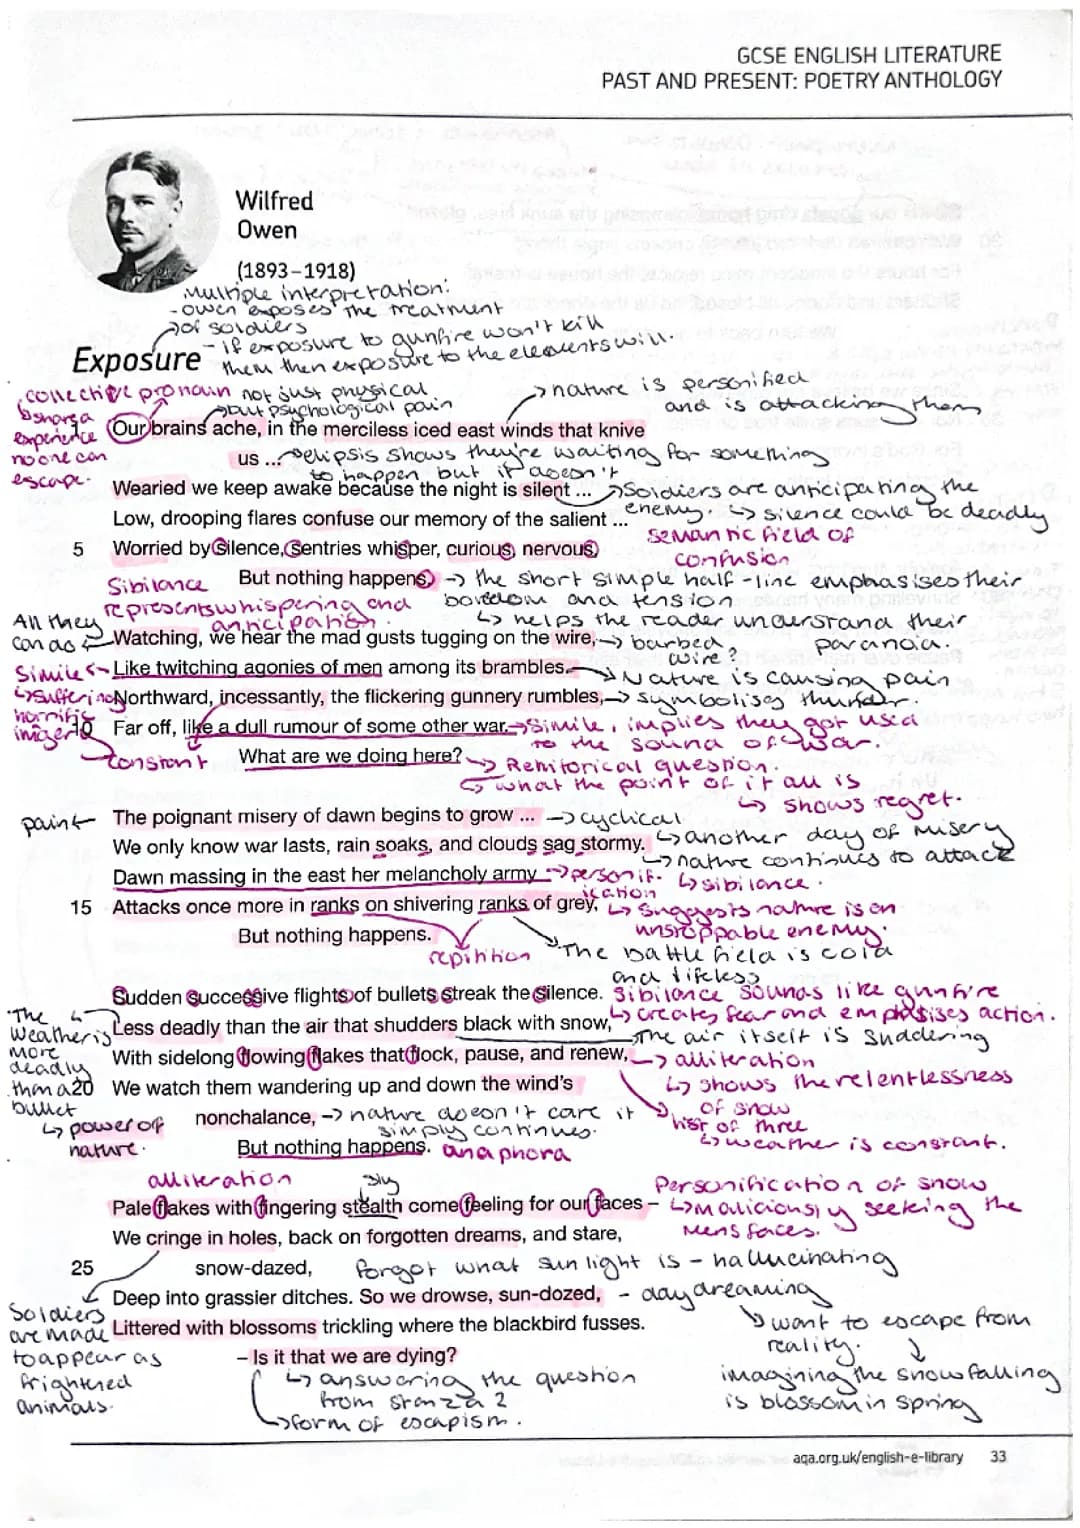 GCSE ENGLISH LITERATURE
PAST AND PRESENT: POETRY ANTHOLOGY
Wilfred
Owen
(1893–1918)
Multiple interpretation:
- Owen exposes the treatment
of soldiers
- If exposure to gunfire won't kill
them then exposure to the elements will.
Exposure
collective pronoun
↳ shared a
experience
no one can
escape.
not just physical
but psychological pain
→ nature is personified
and is attacking them
Our brains ache, in the merciless iced east winds that knive
us ...
→ elipsis shows they're waiting for something
to happen but it doesn't
Wearied we keep awake because the night is silent ...
→ Soldiers are anticipating the
enemy. ↳ silence could be deadly
Low, drooping flares confuse our memory of the salient ...
semantic field of
confusion
5 Worried by silence, sentries whisper, curious, nervous,
But nothing happens.
→ the short simple half-line emphasises their
boredom and tension
↳ helps the reader understand their
paranoia.
Sibilance
represents whispering and
anticipation.
All they
can do
Watching, we hear the mad gusts tugging on the wire,
→ barbed
wire?
Simile
↳ suffering
horrific
imagery
Like twitching agonies of men among its brambles.
→ Nature is causing pain
Northward, incessantly, the flickering gunnery rumbles,
→ symbolises thunder.
10 Far off, like a dull rumour of some other war.
→ Simile, implies they got used
to the sound of war.
constant
What are we doing here?
→ Rehitorical question.
↳ what the point of it all is
↳ shows regret.
pain ←
The poignant misery of dawn begins to grow ...
→ cyclical
↳ another day of misery
We only know war lasts, rain soaks, and clouds sag stormy.
↳ nature continues to attack
↳ sibilance.
Dawn massing in the east her melancholy army
→ personification
15 Attacks once more in ranks on shivering ranks of grey,
↳ suggests nature is an
unstoppable enemy.
But nothing happens.
repitition
The battle field is cold
and lifeless
Sudden successive flights of bullets streak the silence.
Sibilance sounds like gunfire
↳ creates fear and emphasises action.
The
weather is
more
deadly
than a
bullet
↳ power of
nature.
Less deadly than the air that shudders black with snow,
→ The air itself is shuddering
With sidelong flowing flakes that flock, pause, and renew,
→ alliteration
↳ shows the relentlessness
of snow
list of three
↳ weather is constant.
20 We watch them wandering up and down the wind's
nonchalance,
→ nature doesn't care it
simply continues.
But nothing happens.
anaphora
alliteration
sly
Pale flakes with fingering stealth come feeling for our faces –
Personification of snow
↳ maliciously seeking the
mens faces.
We cringe in holes, back on forgotten dreams, and stare,
25 snow-dazed,
forgot what sunlight is - hallucinating
Deep into grassier ditches. So we drowse, sun-dozed,
- day dreaming
Soldiers
are made
to appear as
frightened
animals.
Littered with blossoms trickling where the blackbird fusses.
↳ want to escape from
reality.
imagining the snow falling
is blossom in spring
– Is it that we are dying?
↳ answering the question
from stanza 2
→ form of escapism.
aqa.org.uk/english-e-library 33